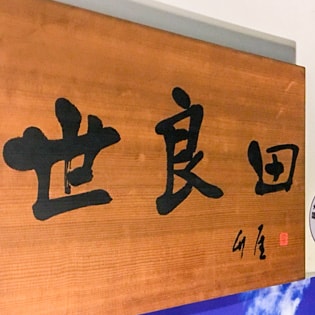 世良田